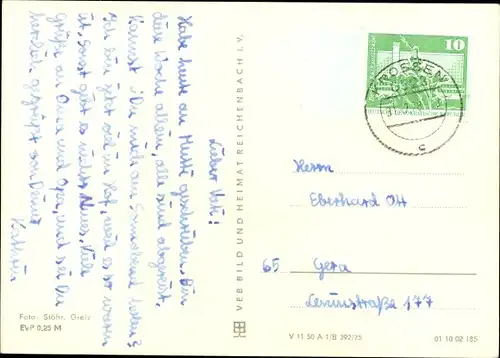 Lieber Vati!
Habe heute an Mutti geschrieben. Bin
diese Woche allein, alle sind abgereist.
Kannst Du mich am Sonnabend holen?
Ich bin jetzt viel im Hof, weil es so warm
ist, sonst gibt es nichts Neues. Viele
Grüße an Oma und Opa, und sei Du
herzlich gegrüßt von Deiner
Kathrin
Foto: Stöhr, Greiz
EVP 0,25 M
VEB BILD UND HEIMAT REICHENBACH I. V.
10
CROSSEN
c
Herrn
Eberhard Ott
65 Gera
Leninstraße 177
V 11 50 A 1/B 392/75
01 10 02 185